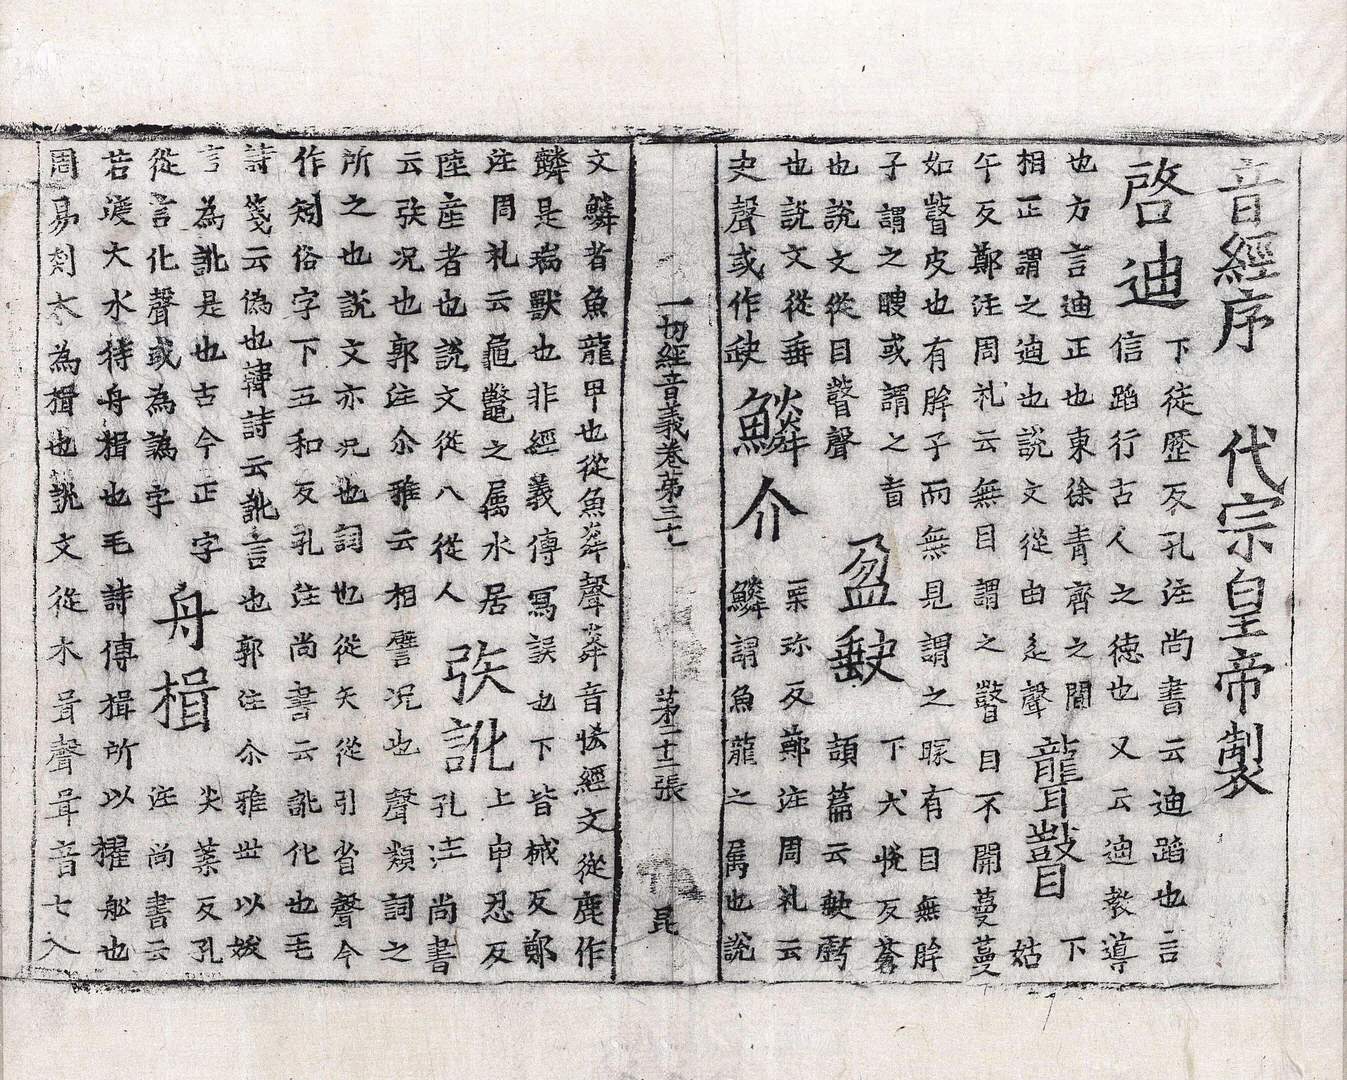 音經序　代宗皇帝製
啓迪
下徒歷反孔注尚書云迪蹈也言
信蹈行古人之德也又云迪教導
也方言迪正也東徐青齊之間
相正謂之迪也說文從由辵聲
聾瞽
下
姑
午反鄭注周礼云無目謂之瞽目不開蔓蔓
如瞽皮也有眸子而無見謂之矇有目無眸
子謂之瞍或謂之盲
也說文從目瞽聲
盈缺
下犬悦反蒼
頡篇云缺虧
也說文從垂
史聲或作缺
鱗介
栗珎反鄭注周礼云
鱗謂魚龍之属也說
一切經音義卷第三七　第二十二張　昆
文鱗者魚龍甲也從魚粦聲粦音恡經文從鹿作
麟是瑞獸也非經義傳冩誤也下皆械反鄭
注周礼云龜鼈之属水居
陸産者也說文從八從人
矤訿
上申忍反
孔注尚書
云矤况也郭注尒雅云相譬况也聲類詞之
所之也說文亦况也詞也從矢從引省聲今
作矧俗字下五和反孔注尚書云訿化也毛
詩箋云偽也韓詩云訿言也郭注尒雅世以妭
言為訿是也古今正字
從言化聲或為譌字
舟楫
尖葉反孔
注尚書云
若渡大水待舟楫也毛詩傳楫所以櫂舩也
周易刳木為楫也說文從木咠聲咠音七入